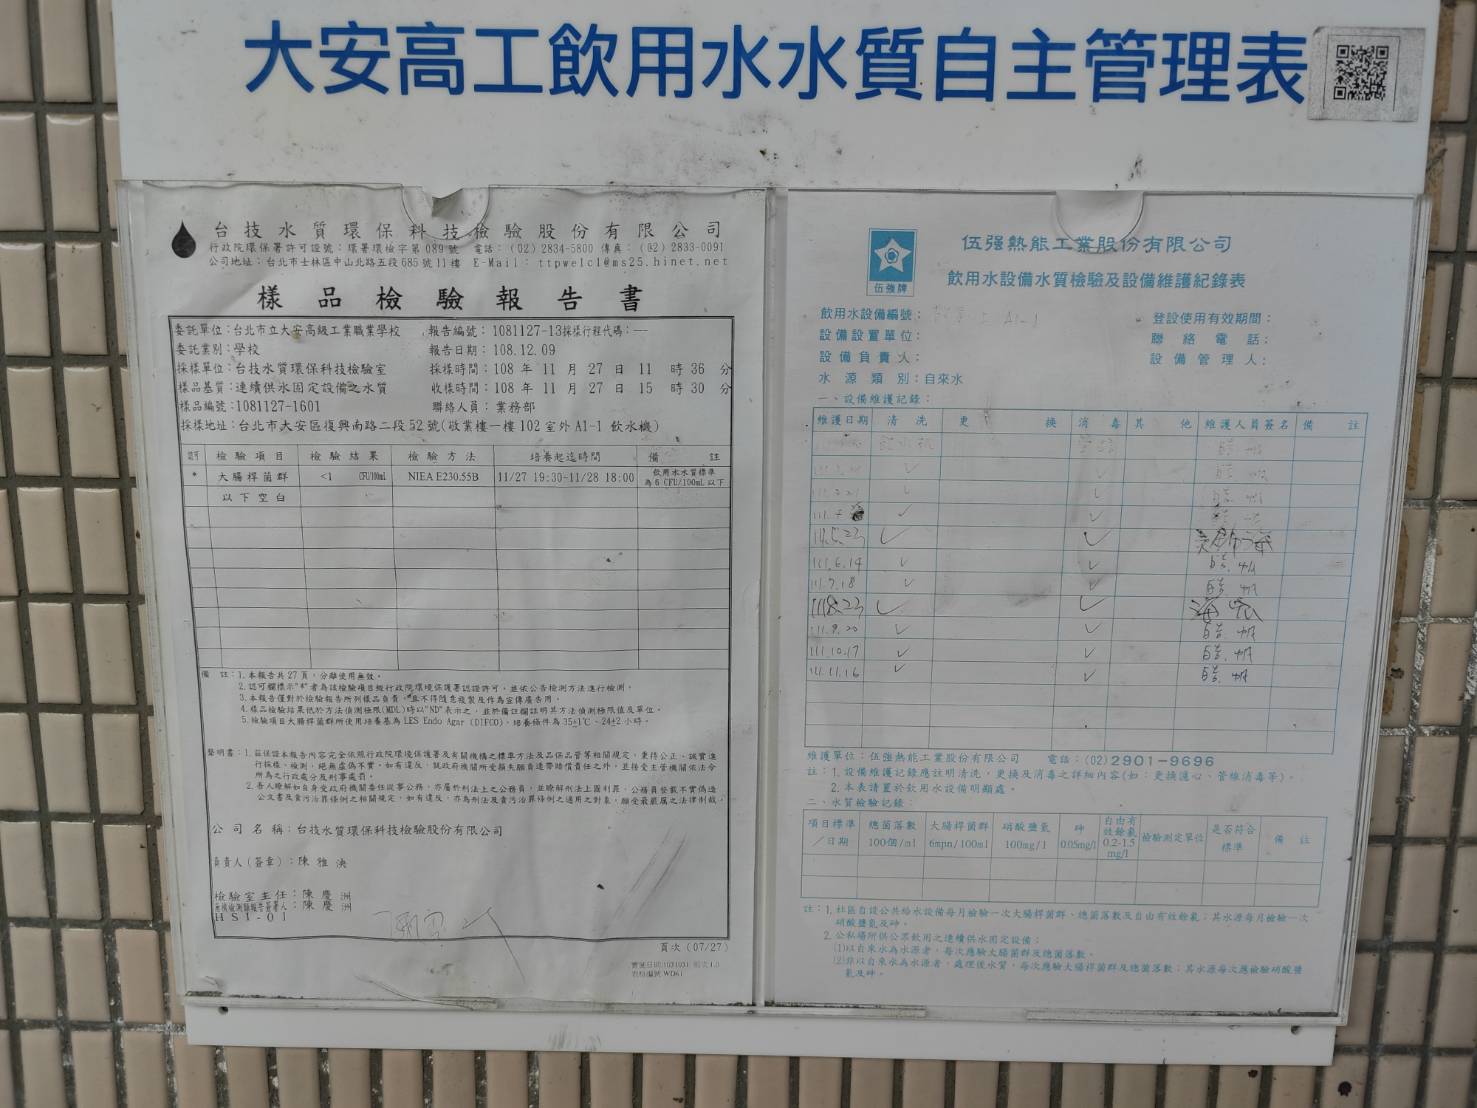 大安高工飲用水水質自主管理表
台技水質環保科技檢驗股份有限公司
行政院環保署許可證號：環署環檢字第089號 電話：(02)2834-5800 傳真：(02)2833-0091
公司地址：台北市士林區中山北路五段685號11樓 E-Mail：ttpwelcl@ms25.hinet.net
樣品檢驗報告書
委託單位：台北市立大安高級工業職業學校 報告編號：1081127-13採樣行程代碼：--
委託業別：學校 報告日期：108.12.09
採樣單位：台技水質環保科技檢驗室 採樣時間：108 年 11 月 27 日 11 時 36 分
樣品基質：連續供水固定設備之水質 收樣時間：108 年 11 月 27 日 15 時 30 分
樣品編號：1081127-1601 聯絡人員：業務部
採樣地址：台北市大安區復興南路二段52號(敬業樓一樓102室外A1-1飲水機)
認可 檢驗項目 檢驗結果 檢驗方法 培養起迄時間 備註
* 大腸桿菌群 <1 CFU/100mL NIEA E230.55B 11/27 19:30~11/28 18:00 飲用水水質標準
為6 CFU/100mL以下
以下空白
備 註：1.本報告共27頁，分離使用無效。
2.認可欄標示"*"者為該檢驗項目經行政院環境保護署認證許可，並依公告檢測方法進行檢測。
3.本報告僅對於檢驗報告所列樣品負責，並不得隨意複製及作為宣傳廣告用。
4.樣品檢驗結果低於方法偵測極限(MDL)時以"ND"表示之，並於備註欄註明其方法偵測極限值及單位。
5.檢驗項目大腸桿菌群所使用培養基為LES Endo Agar (DIFCO)，培養條件為35±1℃、24±2小時。
聲明書：1.茲保證本報告內容完全依照行政院環境保護署及有關機構之標準方法及品保品管等相關規定，秉持公正、誠實進
行採樣、檢測。絕無虛偽不實，如有違反，就政府機關所受損失願負連帶賠償責任之外，並接受主管機關依法令
所為之行政處分及刑事處罰。
2.吾人瞭解如自身受政府機關委任從事公務，亦屬於刑法上之公務員，並瞭解刑法上圖利罪、公務員登載不實偽造
公文書及貪污治罪條例之相關規定，如有違反，亦為刑法及貪污治罪條例之適用之對象，願受最嚴厲之法律制裁。
公司名稱：台技水質環保科技檢驗股份有限公司
負責人(簽章)：陳雅泱
檢驗室主任：陳慶洲
陳慶洲
HSI-01
頁次(07/27)
伍強牌
伍强熱能工業股份有限公司
飲用水設備水質檢驗及設備維護紀錄表
飲用水設備編號： A1-1 登設使用有效期間：
設備設置單位： 聯絡電話：
設備負責人： 設備管理人：
水源類別：自來水
一、設備維護記錄：
維護日期 清洗 更換 消毒 其他 維護人員簽名 備註
111.5.23 ✓ ✓
111.6.14 ✓ ✓
111.7.18 ✓ ✓
111.8.23 ✓ ✓
111.9.20 ✓ ✓
111.10.17 ✓ ✓
111.11.16 ✓ ✓
維護單位：伍強熱能工業股份有限公司 電話：(02)2901-9696
註：1.設備維護記錄應註明清洗，更換及消毒之詳細內容(如：更換濾心、管線消毒等)。
2.本表請置於飲用水設備明顯處。
二、水質檢驗記錄：
項目標準／日期 總菌落數 100個/ml 大腸桿菌群 6mpn/100ml 硝酸鹽氮 100mg/l 砷 0.05mg/l 自由有效餘氯 0.2-1.5 mg/l 檢驗測定單位 是否符合標準 備註
註：1.社區自設公共給水設備每月檢驗一次大腸桿菌群、總菌落數及自由有效餘氯；其水源每月檢驗一次
硝酸鹽氮及砷。
2.公私場所供公眾飲用之連續供水固定設備：
(1)以自來水為水源者，每次應驗大腸菌群及總菌落數。
(2)非以自來水為水源者，處理後水質，每次應驗大腸桿菌群及總菌落數；其水源每次應檢驗硝酸鹽
氮及砷。